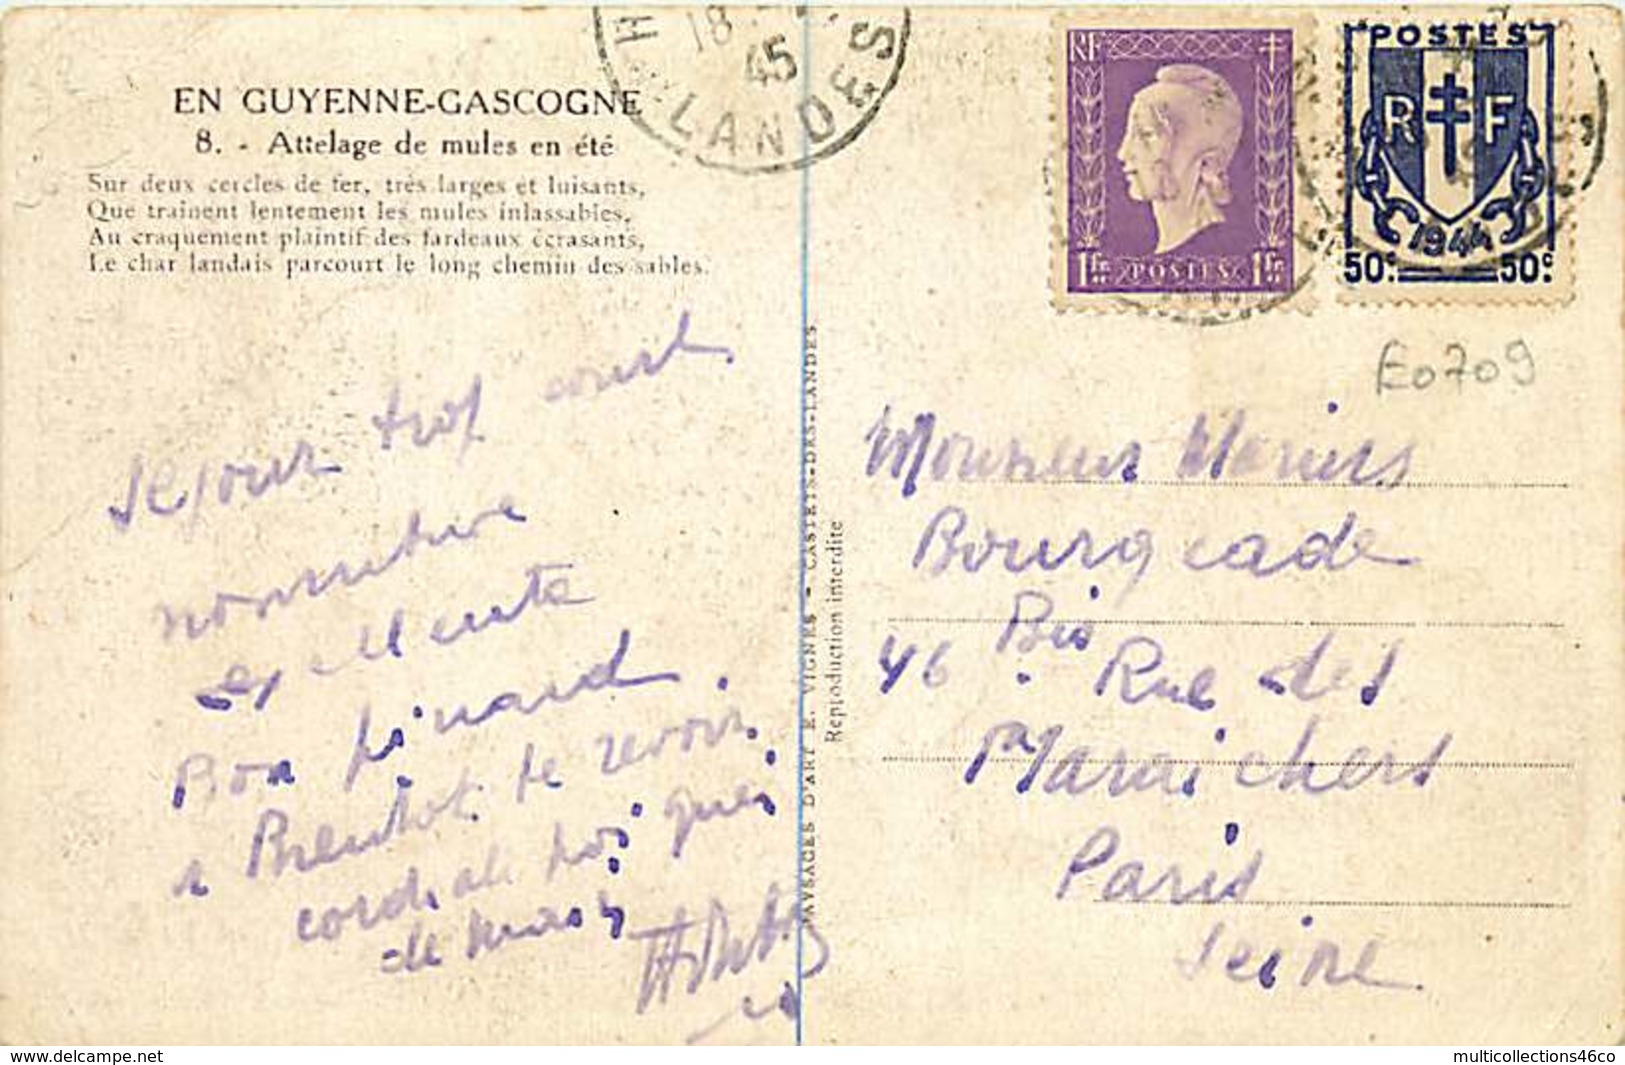 EN GUYENNE-GASCOGNE
8. - Attelage de mules en été
Sur deux cercles de fer, très larges et luisants,
Que trainent lentement les mules inlassables,
Au craquement plaintif des fardeaux écrasants,
Le char landais parcourt le long chemin des sables.
18
45
LANDES
RF
1fr POSTES 1fr
POSTES
R F
1944
50c 50c
E0709
Sejour trop court
nourriture
excellente
Bon pinard
a Bientot te revoir
cordiale poignée
de main
PAYSAGES D'ART E. VIGNES - CASTETS-DES-LANDES
Reproduction interdite
Monsieur Marius
Bourgeade
46 Bis Rue des
Maraichers
Paris
Seine
www.delcampe.net
multicollections46co